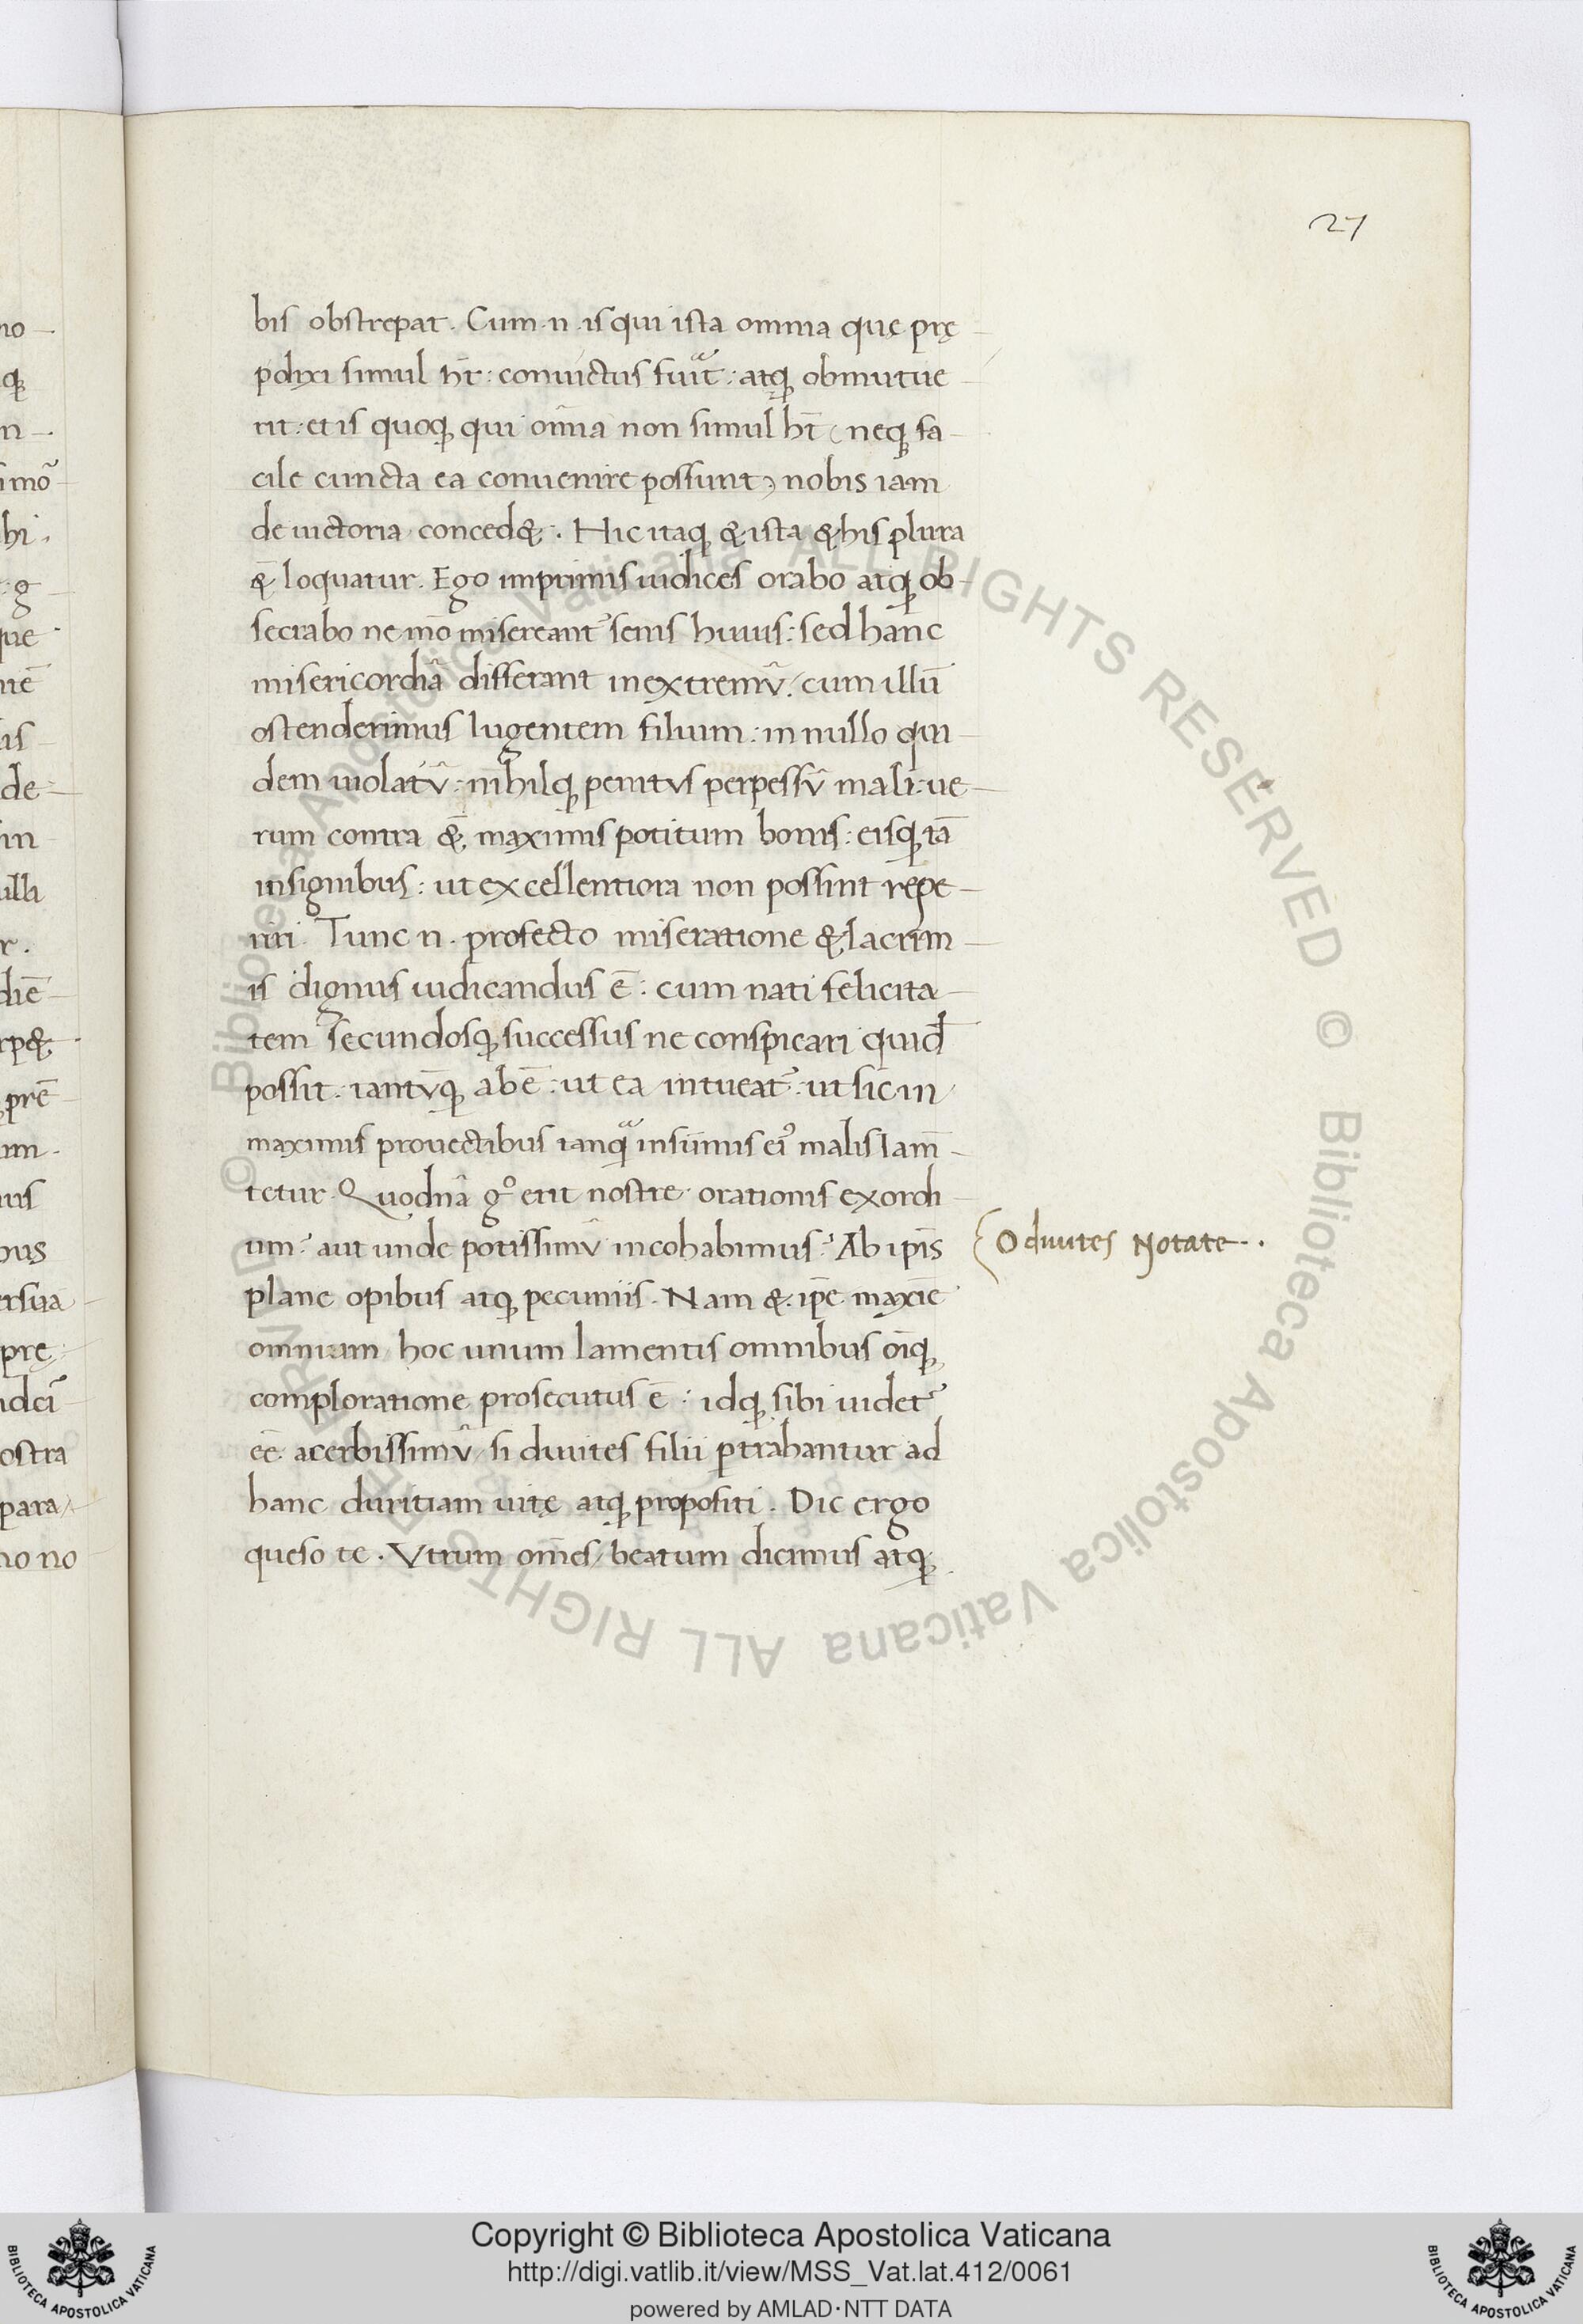 27
bis obstrepat. Cum .n. is qui ista omnia quę prę
pdixi simul hn̄t: conuictus fuit: atq; obmutue
rit: et is quoq; qui om̄ia non simul ht̄ (neq; fa
cile cuncta ea conuenire possunt) nobis iam
de uictoria conced&. Hic itaq; & ista & his plura
&̄ loquatur. Ego imprimis iudices orabo atq; ob
secrabo ne mō misereant᷑ senis huius: sed hanc
misericordiā differant in extremū. cum illū
ostenderimus lugentem filium: in nullo qui
dem uiolatū: nihilq; penitus perpessū mali: ue
rum contra &̄ maximis potitum bonis: eisq; tā
insignibus: ut excellentiora non possint repe
riri. Tunc .n. profecto miseratione & lacrim
is dignus iudicandus ē: cum nati felicita
tem secundosq; successus ne conspicari quid̄
possit: tantūq; ab ē: ut ea intueat᷑: ut sic in
maximis prouectibus tanq̃ in sūmis ei᷒ malis lam̄
tetur. Quodnā gº erit nostre orationis exordi
um? aut unde potissimū incohabimus? Ab ip̄is
plane opibus atq; pecuniis. Nam & ip̄e maxīe
omnium hoc unum lamentis omnibus oīq;
comploratione prosecutus ē: idq; sibi uidet᷑
eē acerbissimū / si diuites filii ꝑtrahantur ad
hanc duritiam uitę atq; propositi. Dic ergo
queso te. Vtrum om̄es / beatum dicimus atq;
O diuites Notate..
no
q;
n
imō
hi.
g
que
de
in
illi
r.
diē
rp&
prē
im.
us
bus
ersua
prę
ostra
para
no no
© Biblioteca Apostolica Vaticana ALL RIGHTS RESERVED © Biblioteca Apostolica Vaticana ALL RIGHTS RESERVED
Copyright © Biblioteca Apostolica Vaticana
http://digi.vatlib.it/view/MSS_Vat.lat.412/0061
powered by AMLAD·NTT DATA
BIBLIOTECA APOSTOLICA VATICANA
BIBLIOTECA APOSTOLICA VATICANA